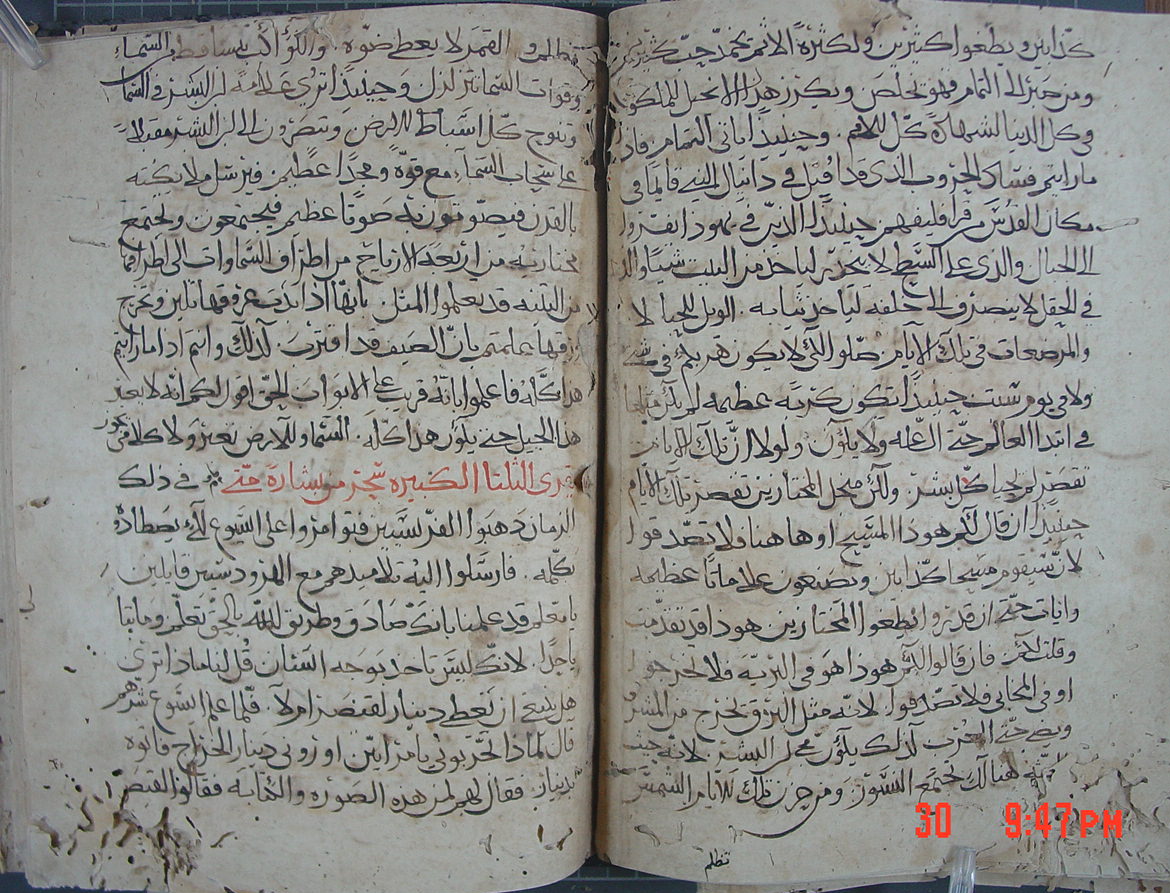 كذابين ويطغوا كثيرين ولكثرة الاثم تجمد حب كثيرين
ومن صبر الى التمام فهو يخلص ويكرز هذا الانجيل الملكوت
في كل الدنيا لشهادة كل للامم. وحينيذ ياتي التمام فاذا
مارايتم فساد الخروب الذى قد قيل في دانيال النبي قايما في
مكان القدس من قرا فليفهم حينيذا الذين في يهوذا يفرون
الى الجبال والذى على السطح لا ينحدر لياخذ من البيت شيا والذى
في الحقل لا ينصرف الى خلفه لياخذ ثيابه. الويل للحبالا
والمرضعات في تلك الايام صلوا لكى لا يكون هربكم في شتى
ولا في يوم سبت حينيذا تكون كربه عظيمه لم يكن مثلها
في ابتدا العالم حتى الى الان ولا يكون ولولا ان تلك الايام
تقصر لم يحيا كل بشر. ولكن من اجل المختارين تقصر تلك الايام
حينيذا ان قال لكم هوذا المسيح او ها هنا فلا تصدقوا
لان سيقوم مسحا كذابين ويصنعون علاماتا عظيمه
وايات حتى ان قدروا يطغوا المختارين هوذا قد تقدمت
وقلت لكم فان قالوا لكم هوذا هو في البريه فلا تخرجوا
او في المخابى فلا تصدقوا لانه مثل البرق يخرج من المشرق
ويضى حتى المغرب كذلك يكون مجى ابن البشر لانه حيث
هنالك تجتمع النسور ومن حزن تلك الايام الشمس
تظلم
تظلم والقمر لا يعطى ضوه. والكواكب يتساقط من السماء
وقوات السما تتزلزل وحينيذ اترى علامة ابن البشر في السما
وتنوح كل اسباط الارض وتنصرون الى ابن البشر مقبلا
على سحاب السماء مع قوة ومجدا عظيم. فيرسل ملايكته
بالقرن فيصوتون به صوتا عظيم فيجتمعون ولجتمع
مختاريه من اربعة الارياح من اطراف السماوات الى اطرافها
من التينه قد يعلموا المثل. بانها اذا اذت عروقها تلين وتخرج
ورقها علمتم بان الصيف قد اقترب كذلك وانتم اذا مارايتم
هذا كله فاعلموا بانه قريب على الابواب الحق اقول لكم انه لا يعبر
هذا الجيل حتى يكون هذا كله. السما والارض تعبر وكلامى لا يجوز
تقرى الثلثا الكبيره سحر من بشارة متى في ذلك
الزمان ذهبوا الفريسيين فتوامروا على اليسوع لكى يصطادوه
بكلمه. فارسلوا اليه تلاميذهم مع الهيرودسيين قايلين
يامعلم قد علمنا بانك صادق وطريق الله بالحق تعلم وماتبا
باحدا لانك ليس تاخذ بوجه انسان قل لنا ماذا ترى
هل ينبغى ان نعطى دينار لقيصر ام لا. فلما علم اليسوع شرهم
قال لماذا تجربونى يامرايين اورونى دينار الخراج فاتوه
بدينار فقال لهم لمن هذه الصوره والكتابه فقالوا لقيصر
30 9:47 PM